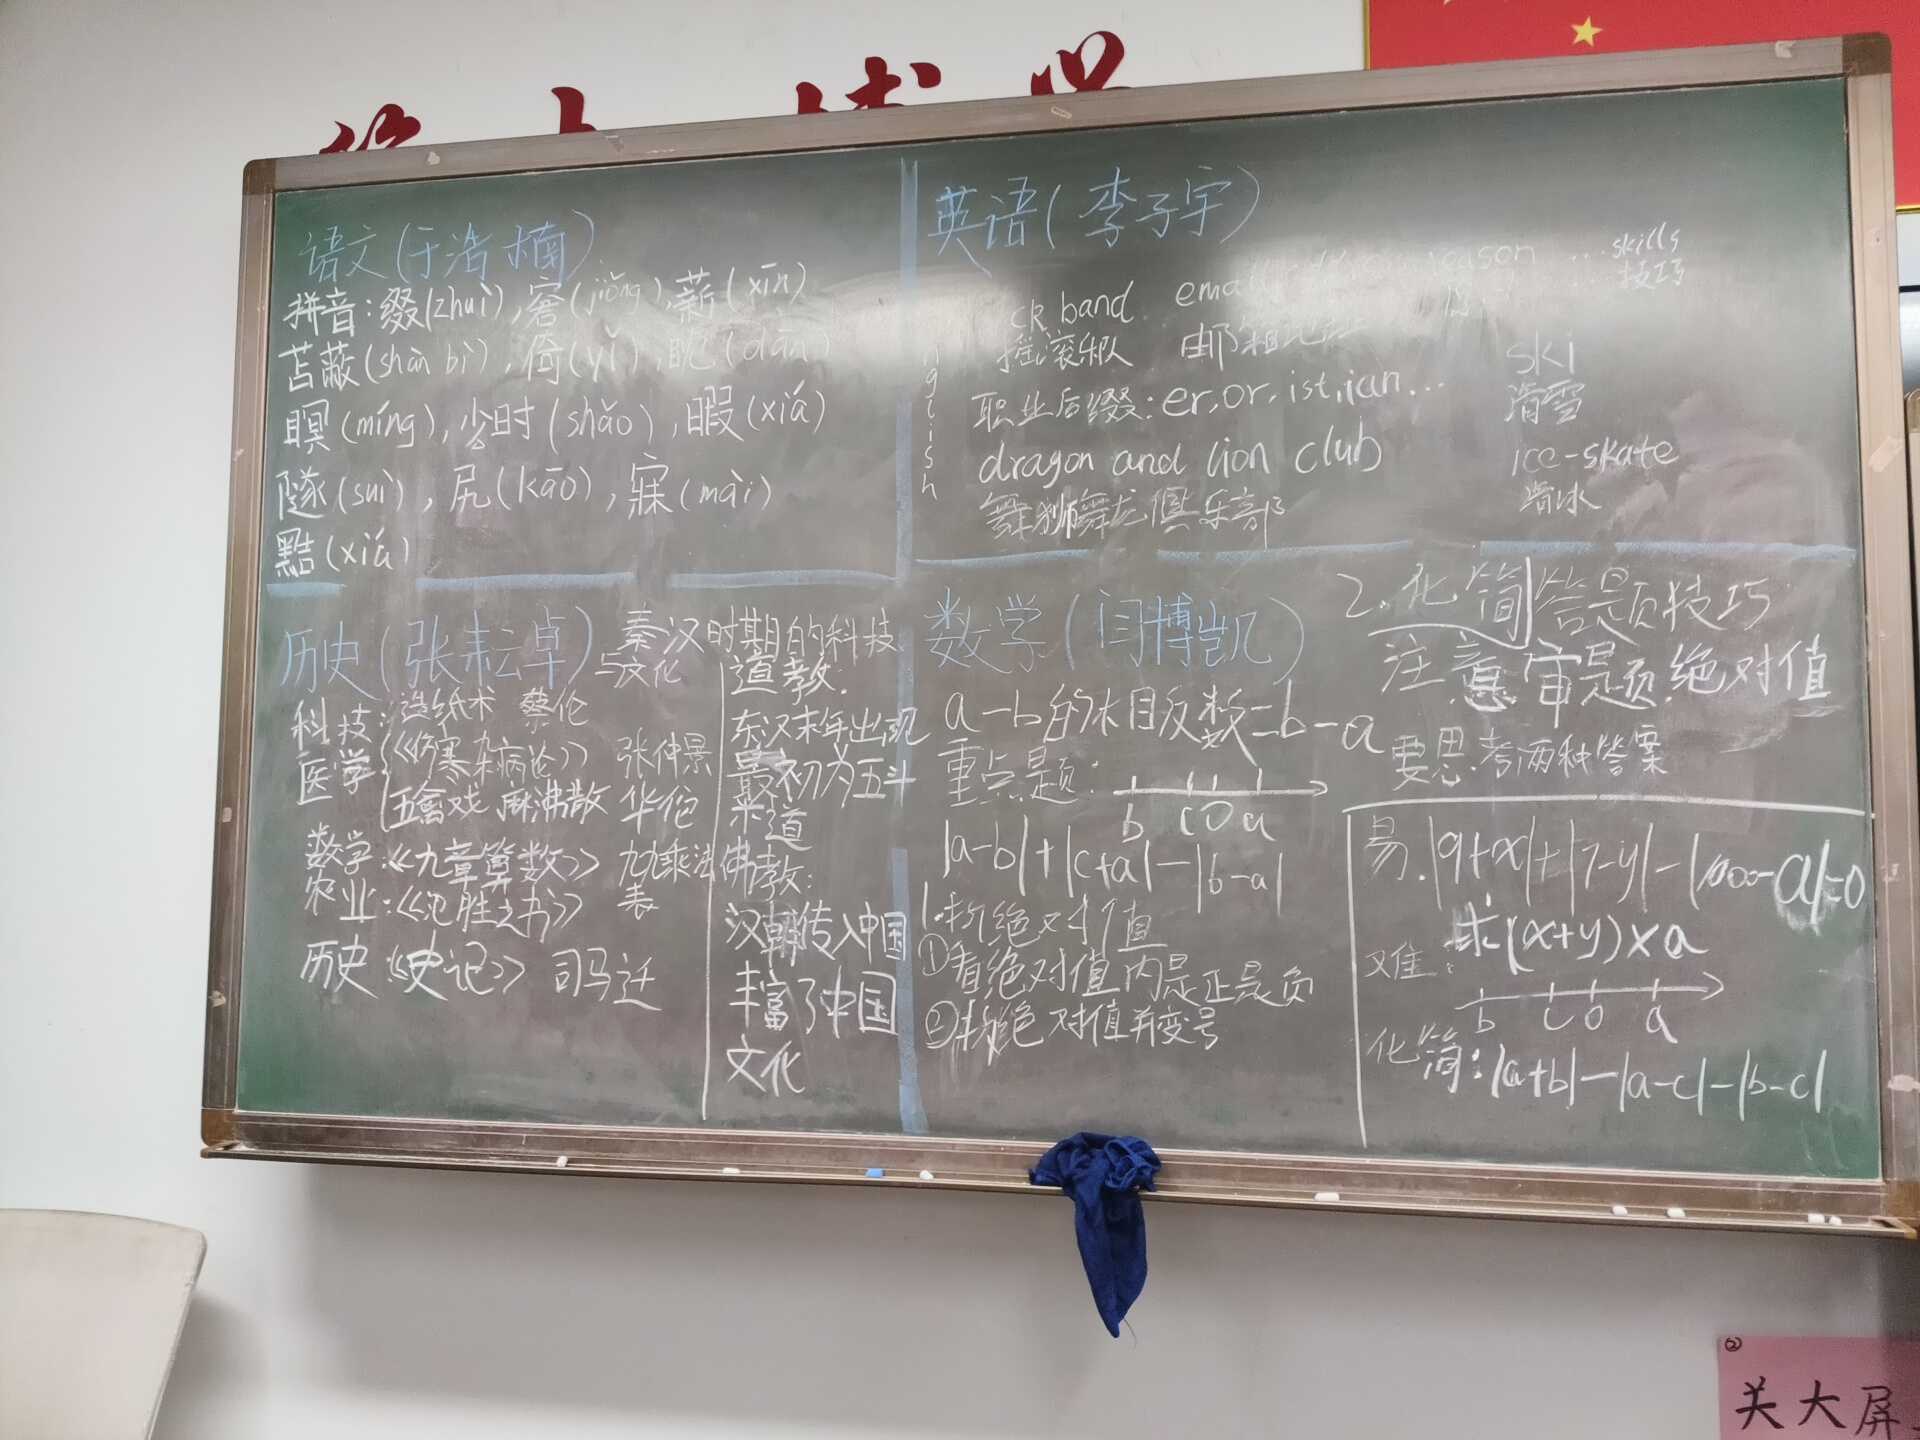 语文(于浩楠)
拼音:缀(zhuì),窘(jiǒng),薪(xīn)
苫蔽(shàn bì),倚(yǐ),眈(dān)
瞑(míng),少时(shǎo),暇(xiá)
隧(suì),尻(kāo),寐(mài)
黠(xiá)
英语(李子宇)
ck band email reason ...skills
摇滚乐队 邮箱地址 ...技巧
nglish
职业后缀:er,or,ist,ian...
dragon and lion club
舞狮舞龙俱乐部
ski
滑雪
ice-skate
滑冰
历史(张耘卓)
秦汉时期的科技
与文化
科技:造纸术 蔡伦
医学:《伤寒杂病论》 张仲景
五禽戏 麻沸散 华佗
数学:《九章算数》 九九乘法
表
农业:《氾胜之书》
历史:《史记》 司马迁
道教:
东汉末年出现
最初为五斗
米道
佛教:
汉朝传入中国
丰富了中国
文化
数学(闫博凯)
a-b的相反数=b-a
重点题:
b c 0 a
|a-b|+|c+a|-|b-a|
1.拆绝对值
①看绝对值内是正是负
②拆绝对值并变号
2.化简答题技巧
注意审题.绝对值
要思考两种答案
易.|9+x|+|7-y|-|1000-a|=0
求(x+y)×a
难:
b c 0 a
化简:|a+b|-|a-c|-|b-c|
②
关大屏